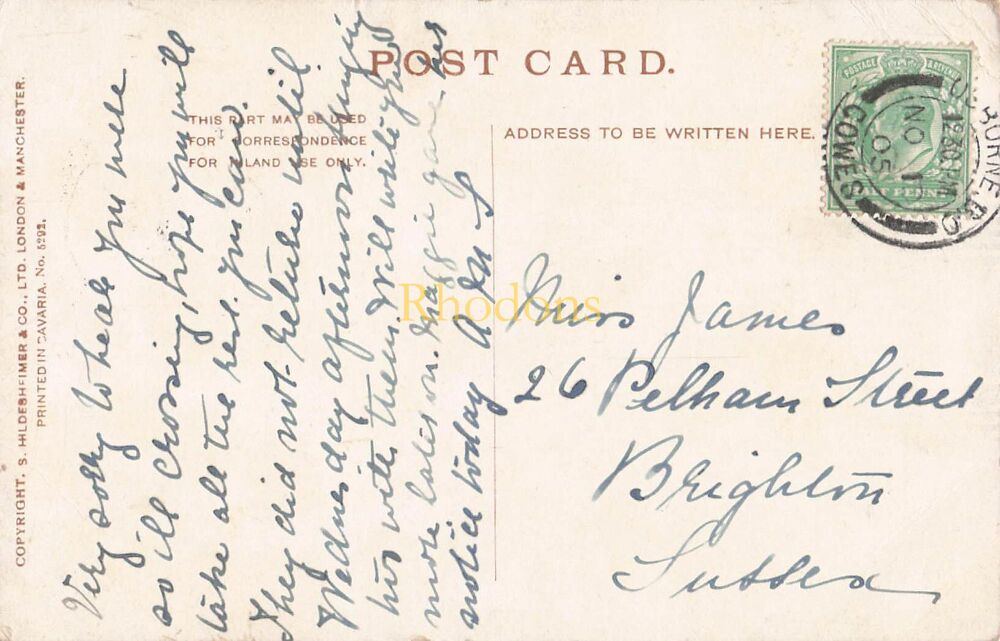 COPYRIGHT. S. HILDESHEIMER & CO., LTD. LONDON & MANCHESTER.
PRINTED IN BAVARIA. No. 5292.
POST CARD.
THIS PART MAY BE USED
FOR CORRESPONDENCE
FOR INLAND USE ONLY.
ADDRESS TO BE WRITTEN HERE.
Very sorry to hear you were
so ill crossing, hope you will
take all the rest you can.
They did not return until
Wednesday afternoon bringing
his with them, Will write you
more later on. Maggie gave her
notice today A M S
Miss James
26 Pelham Street
Brighton
Sussex
POSTAGE & REVENUE
PENNY
OSBORNE R.D.
12.30 PM
NO 1
05
COWES
Rhodons